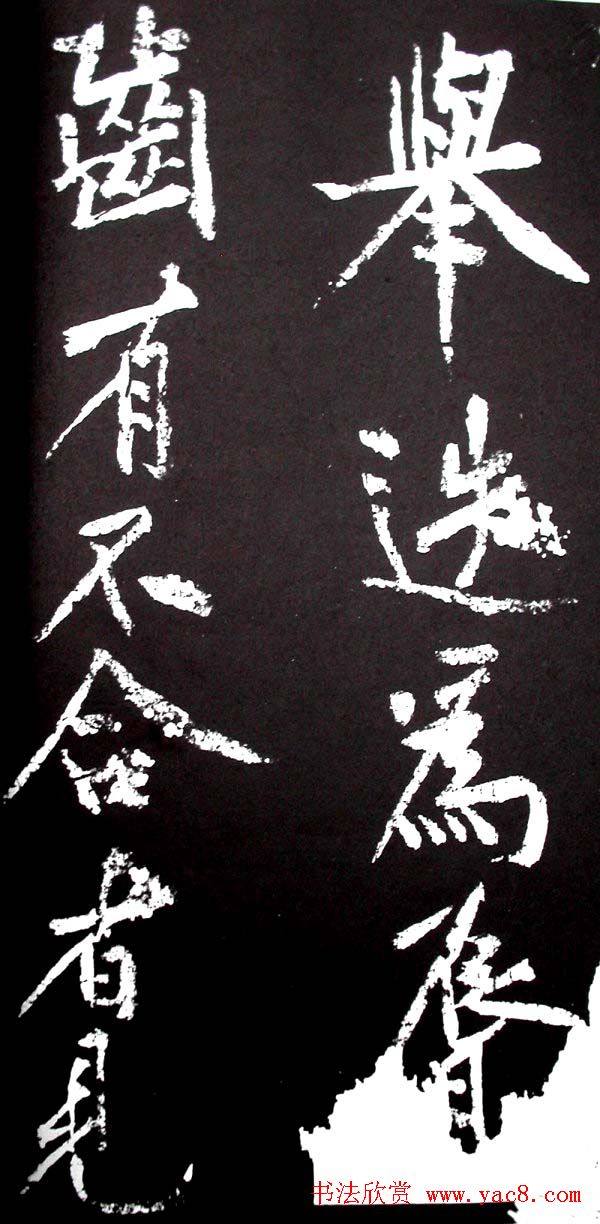 舉迭為脣
齒有不合者見
书法欣赏 www.yac8.com